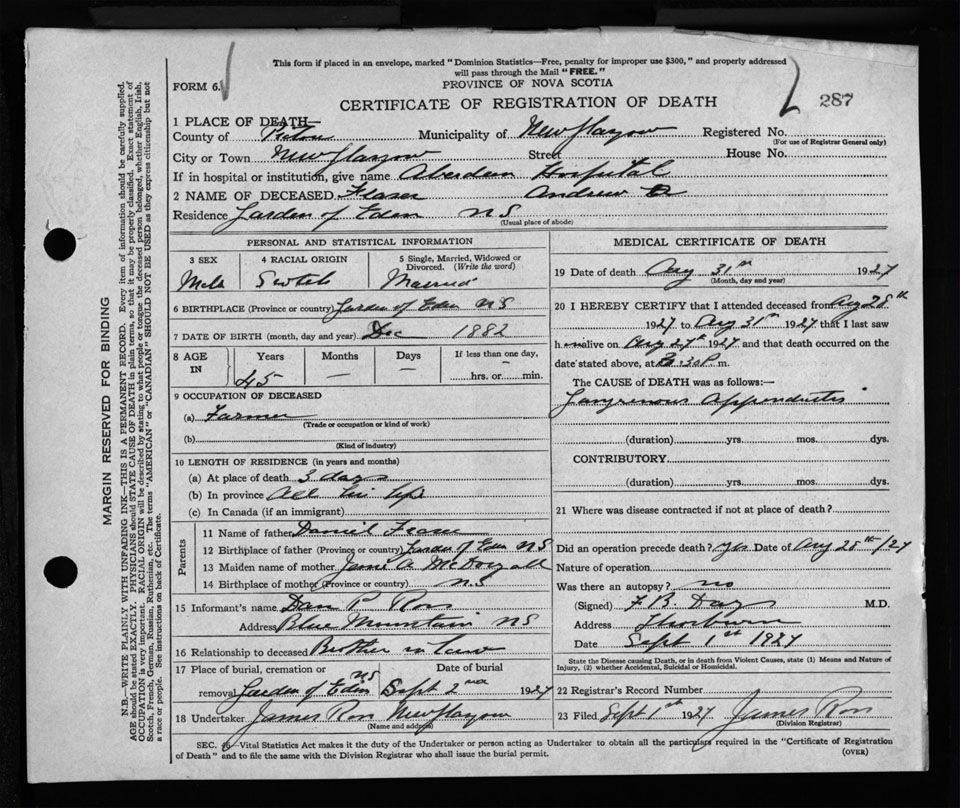 This form if placed in an envelope, marked "Dominion Statistics—Free, penalty for improper use $300," and properly addressed
will pass through the Mail "FREE."
FORM 6.
PROVINCE OF NOVA SCOTIA
CERTIFICATE OF REGISTRATION OF DEATH
287
1 PLACE OF DEATH—
County of Pictou Municipality of New Glasgow Registered No.
(For use of Registrar General only)
City or Town New Glasgow Street House No.
If in hospital or institution, give name Aberdeen Hospital
2 NAME OF DECEASED Fraser Andrew
Residence Garden of Eden NS
(Usual place of abode)
PERSONAL AND STATISTICAL INFORMATION
3 SEX 4 RACIAL ORIGIN 5 Single, Married, Widowed or Divorced. (Write the word)
Male Scotch Married
6 BIRTHPLACE (Province or country) Garden of Eden NS
7 DATE OF BIRTH (month, day and year) Dec 1882
8 AGE IN Years Months Days If less than one day,
45 — — hrs. or min.
9 OCCUPATION OF DECEASED
(a) Farmer
(Trade or occupation or kind of work)
(b)
(Kind of industry)
10 LENGTH OF RESIDENCE (in years and months)
(a) At place of death 3 days
(b) In province All his life
(c) In Canada (if an immigrant)
Parents
11 Name of father Daniel Fraser
12 Birthplace of father (Province or country) Garden of Eden NS
13 Maiden name of mother A McDougall
14 Birthplace of mother (Province or country) NS
15 Informant's name Dan P Ross
Address Blue Mountain NS
16 Relationship to deceased Brother in law
17 Place of burial, cremation or removal Garden of Eden NS
Date of burial Sept 2nd 1927
18 Undertaker James Ross New Glasgow
(Name and address)
MEDICAL CERTIFICATE OF DEATH
19 Date of death Aug 31st 1927
(Month, day and year)
20 I HEREBY CERTIFY that I attended deceased from Aug 28th
1927 to Aug 31st 1927 that I last saw
h alive on Aug 27th 1927 and that death occurred on
date stated above, at 30 P. m.
The CAUSE OF DEATH was as follows:—
Gangrenous Appendicitis
(duration) yrs. mos. dys.
CONTRIBUTORY.
(duration) yrs. mos. dys.
21 Where was disease contracted if not at place of death?
Did an operation precede death? Yes Date of Aug 28th/27
Nature of operation
Was there an autopsy? no
(Signed) F B. Day M.D.
Address Thorburn
Date Sept 1st 1927
State the Disease causing Death, or in death from Violent Causes, state (1) Means and Nature of
Injury, (2) whether Accidental, Suicidal or Homicidal.
22 Registrar's Record Number
23 Filed Sept 1st 1927 James Ross
(Division Registrar)
SEC. —Vital Statistics Act makes it the duty of the Undertaker or person acting as Undertaker to obtain all the particulars required in the "Certificate of Registration
of Death" and to file the same with the Division Registrar who shall issue the burial permit.
(OVER)
MARGIN RESERVED FOR BINDING
N.B.—WRITE PLAINLY WITH UNFADING INK—THIS IS A PERMANENT RECORD. Every item of information should be carefully supplied.
AGE should be stated EXACTLY. PHYSICIANS should STATE CAUSE OF DEATH in plain terms, so that it may be properly classified. Exact statement of
OCCUPATION is very important. RACIAL ORIGIN will be described by stating to what people or tongue the deceased person belonged, whether English, Irish,
Scotch, French, German, Russian, Ruthenian, etc. The terms "AMERICAN" or "CANADIAN" SHOULD NOT BE USED as they express citizenship but not
a race or people. See instructions on back of Certificate.